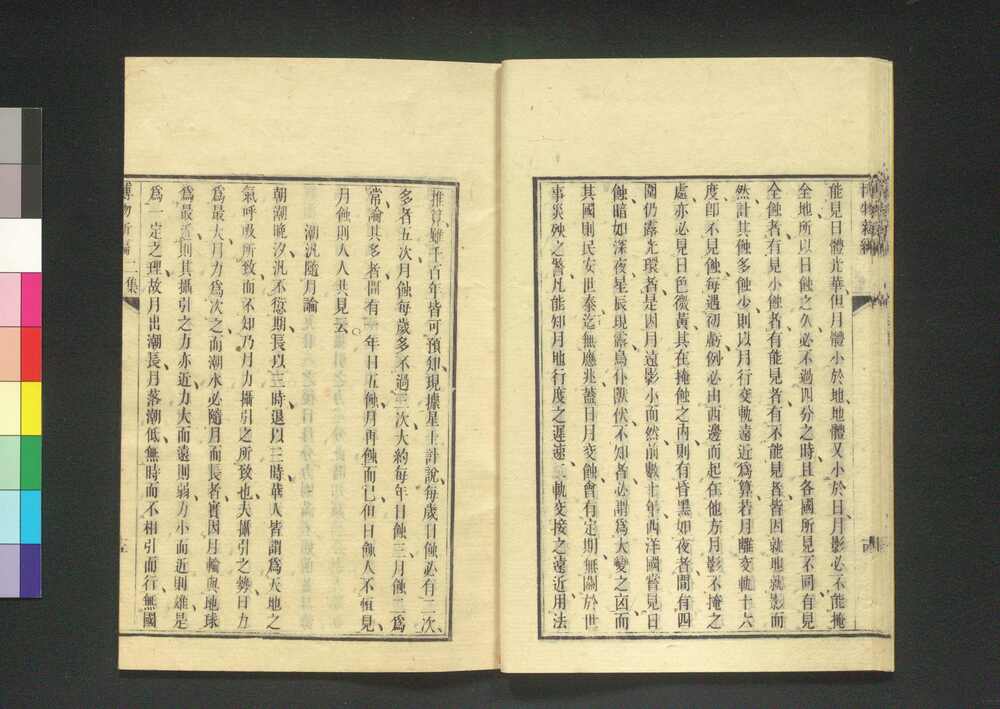 博物新編
能見日體光華但月體小於地地體又小於日月影必不能掩
全地所以日蝕之久必不過四分之時且各國所見不同有見
全蝕者有見小蝕者有能見者有不能見者皆因就地就影而
然計其蝕多蝕少則以月行交軌遠近爲算若月離交軌十六
度卽不見蝕每遇初虧例必由西邊而起在他方月影不掩之
處亦必見日色微黃其在掩蝕之內則有昏黑如夜者間有四
圍仍露光環者是因月遠影小而然前數十年西洋國嘗見日
蝕暗如深夜星辰現露鳥仆獸伏不知者必謂爲大變之凶而
其國則民安世泰迄無應兆蓋日月交蝕會有定期無關於世
事災殃之警凡能知月地行度之遲速二軌交接之遠近用法
推算雖千百年皆可預知現據星士計說每歲日蝕必有二次
多者五次月蝕每歲多不過三次大約每年日蝕三月蝕二爲
常論其多者間有一年日五蝕月再蝕而已但日蝕人不恒見
月蝕則人人共見云
潮汎隨月論
朝潮晚汐汎不愆期長以三時退以三時華人皆謂爲天地之
氣呼吸所致而不知乃月力攝引之所致也夫攝引之勢日力
爲最大月力爲次之而潮水必隨月而長者實因月輪與地球
爲最近則其攝引之力亦近力大而遠則弱力小而近則雄是
爲一定之理故月出潮長月落潮低無時而不相引而行無國
博物新編二集